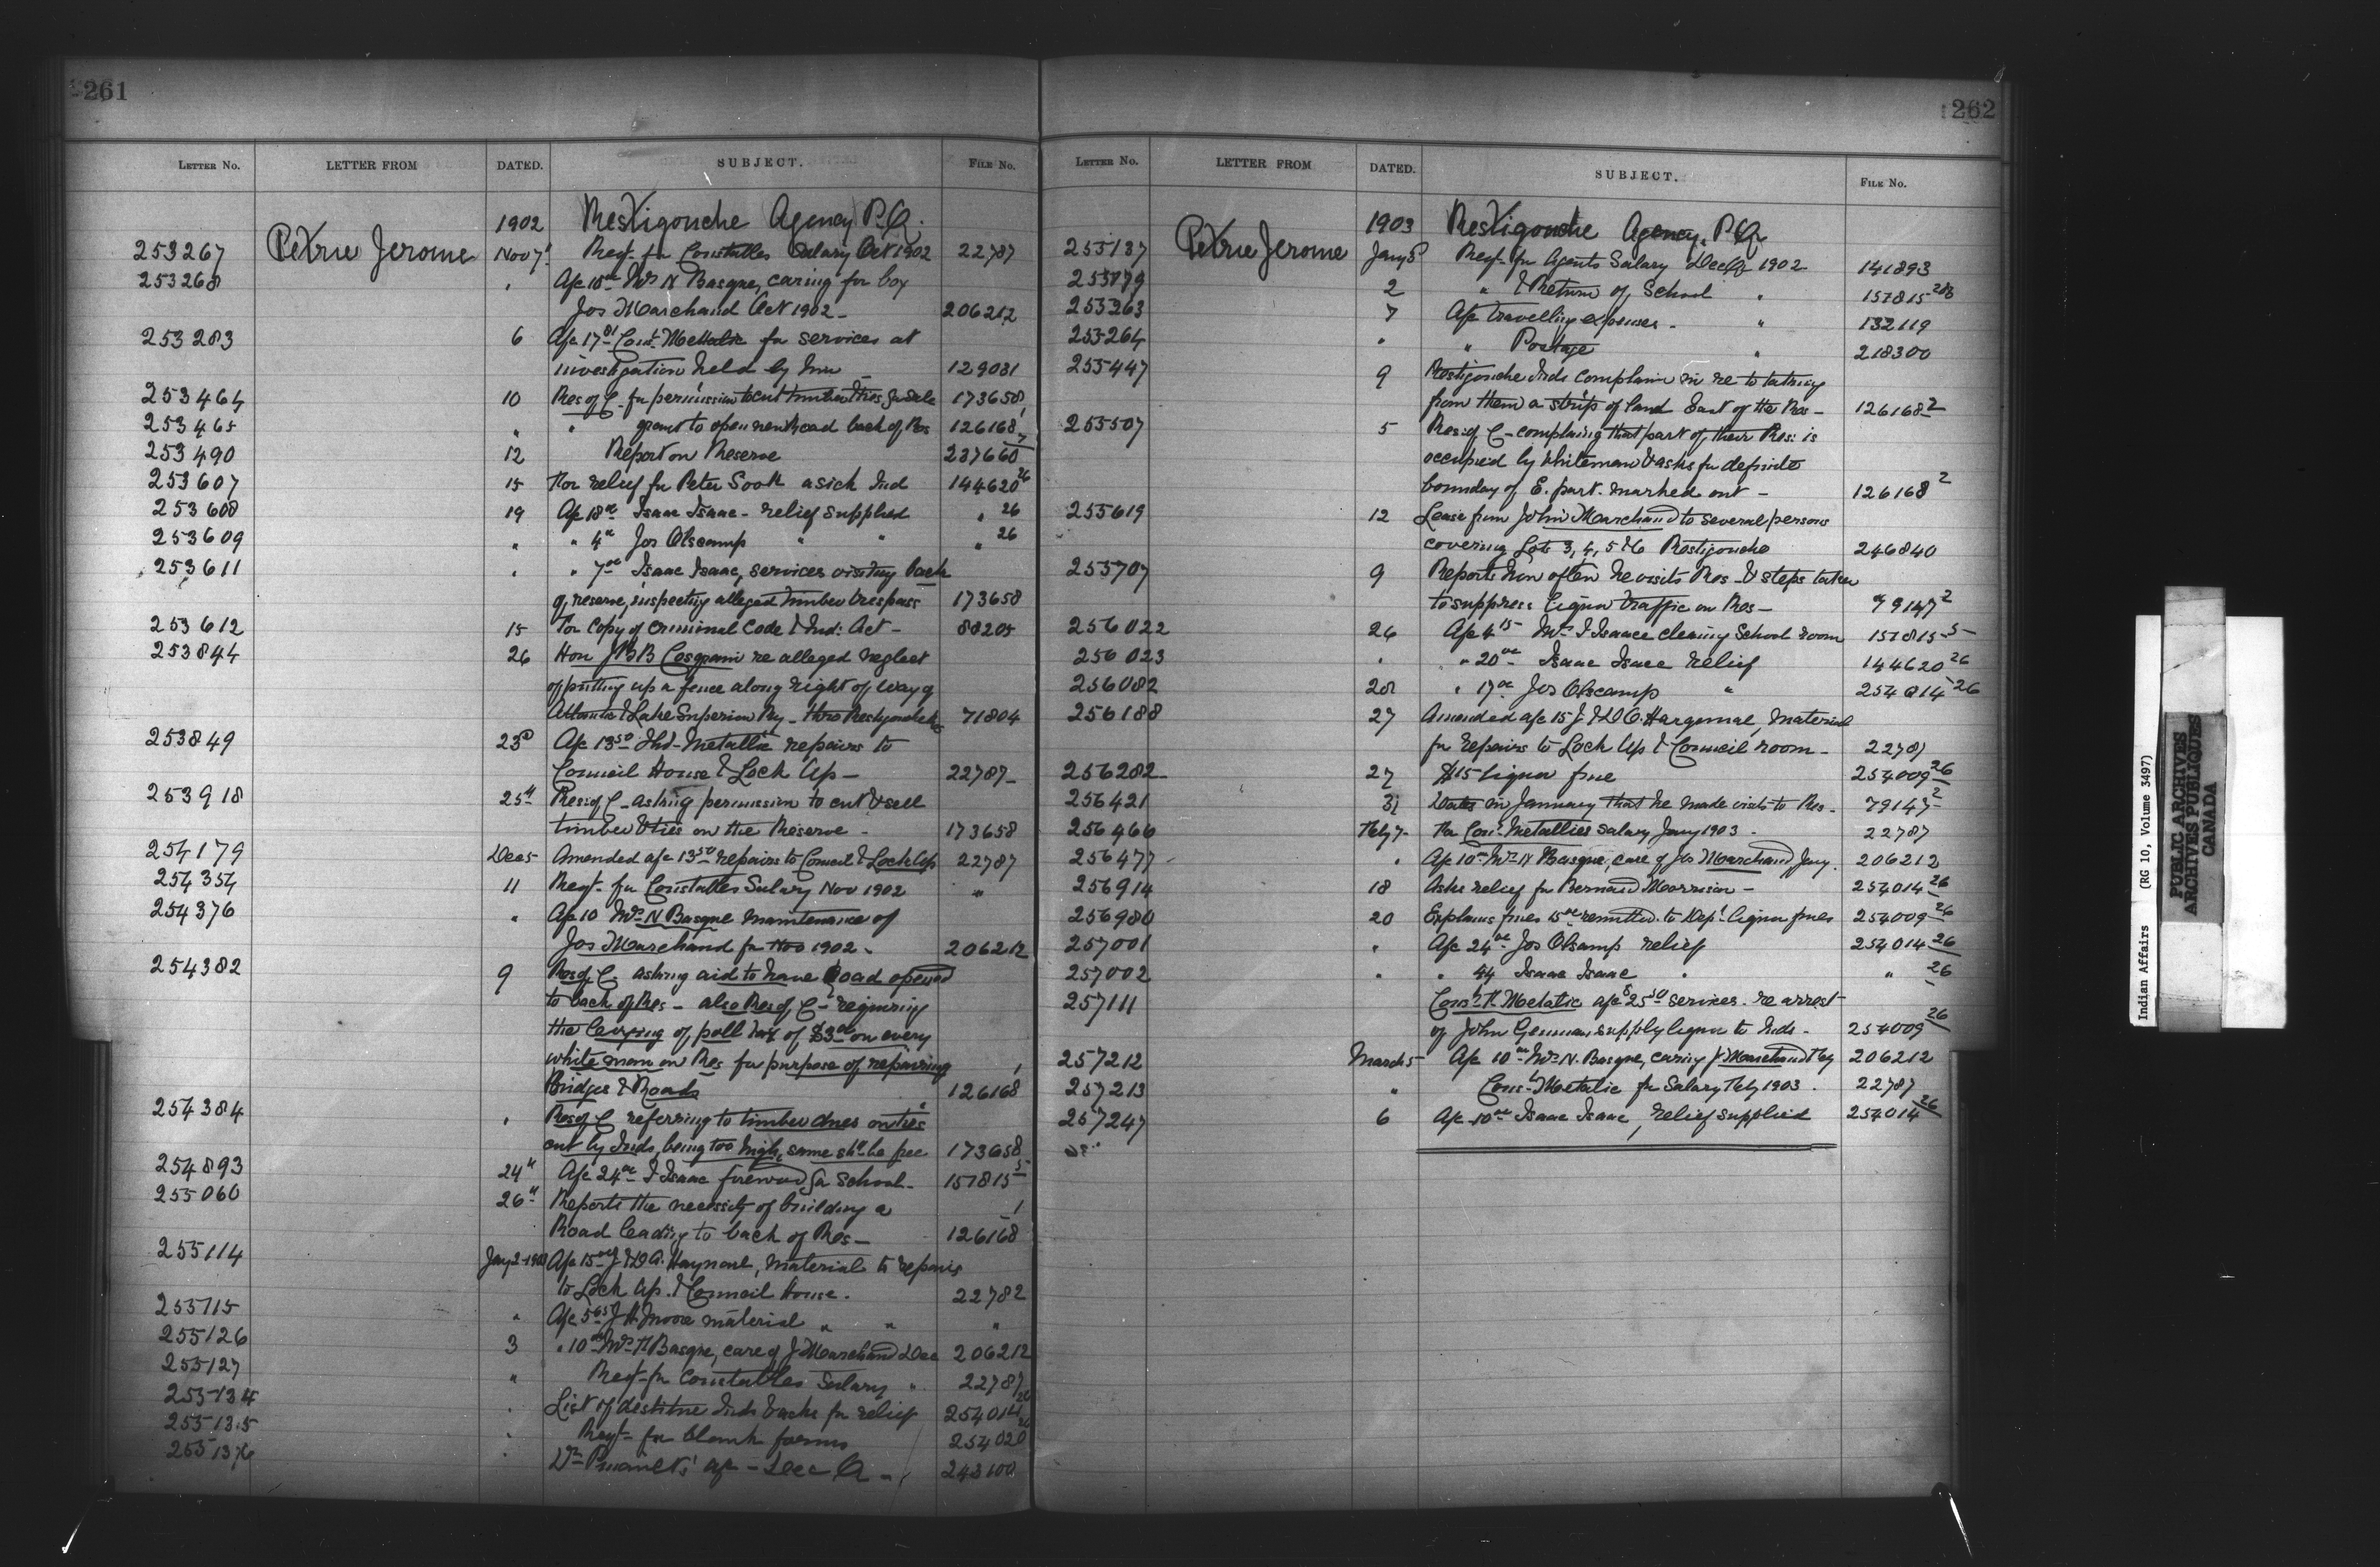 261
LETTER No. LETTER FROM DATED. SUBJECT. FILE No.
1902 Restigouche Agency P.Q.
253267 Petrie Jerome Nov 7 Reqt. for Constables Salary Oct 1902 22787
253268 " A/c 10 00 Mrs N Basque, caring for boy
Jos Marchand Oct 1902 - 206212
253283 6 A/c Const. Metallic for services at
investigation held by him - 129031
253464 10 Res of C. for permission to cut timber 173658
253465 " " grant to open new Road back of Res 126168
253490 12 Report on Reserve 237660
253607 15 For relief for Peter Sook a sick Ind 144620 26
253608 19 A/c 18 00 Isaac Isaac - relief supplied " 26
253609 " " 4 00 Jos Olscamp " " " 26
253611 " " 7 00 Isaac Isaac, services visiting back
of reserve, inspecting alleged timber trespass 173658
253612 15 For copy of Criminal Code & Ind: Act - 88205
253844 26 Hon J B B Casgrain re alleged neglect
of putting up a fence along right of way of
Atlantic & Lake Superior Ry - thro Restigouche Res 71804
253849 23d A/c 13 50 Metallic repairs to
Council House & Lock Up - 22787 -
253918 25th Res: of C - asking permission to cut & sell
timber & ties on the Reserve - 173658
254179 Dec 5 Amended a/c 13 50 repairs to Council & Lock Up 22787
254354 11 Reqt. for Constables Salary Nov 1902 "
254376 " A/c 10 Mrs N Basque maintenance of
Jos Marchand for Nov 1902 - 206212
254382 9 Res of C. asking aid to have Road opened
to back of Res - also Res of C - requiring
the levying of poll tax of $3 00 on every
white man on Res for purpose of repairing
Bridges & Roads 126168
254384 " Res of C referring to timber dues on ties
cut by Inds, being too high, same shd. be free 173658
254893 24th A/c 24 00 I Isaac firewood for School - 157815 5
255060 26th Reports the necessity of building a
Road leading to back of Res - 126168
255114 Jany 2 1903 A/c 15 J & D A. Harquail, material to repairs
to Lock Up & Council House. 22782
255115 " A/c 5 65 J H Moore material " " "
255126 3 " 10 00 Mrs N Basque, care of J Marchand Dec 206212
255127 " Reqt. for Constables Salary " 22787
255134 " List of destitute Inds & asks for relief 254014 26
255135 " Reqt. for blank forms 254020
" Dr a/c - Dec Q " 243100
262
LETTER No. LETTER FROM DATED. SUBJECT. FILE No.
1903 Restigouche Agency, P.Q
255137 Petrie Jerome Jany 5 Reqt. for Agents Salary Dec Q 1902 141893
2 " & Return of School " 157815
255263 7 A/c travelling expenses - " 132119
255264 " " Postage " 218300
255447 9 Restigouche Inds complain in re to taking
from them a strip of land East of the Res - 126168 2
255507 5 Res: of C - complaing that part of their Res: is
occupied by Whiteman & asks for definite
bounday of E. part. marked out - 126168 2
255619 12 Lease from John Marchand to several persons
covering Lots 3, 4, 5 & 6 Restigouche 246840
255707 9 Reports how often he visits Res - & steps taken
to suppress liquor traffic on Res - 79147 2
256022 26 A/c 4 15 Mrs I Isaace cleaning School room 157815-5
256023 " " 20 00 Isaac Isacc relief 144620 26
256082 20 " 17 00 Jos Olscamp " 254014 26
256188 27 Amended a/c 15 J. & D A. Harquail, Material
for repairs to Lock Up & Council room - 22787
256282 27 $15 liquor fine 254009 26
256421 31 Dates in January that he made visits to Res - 79147 2
256466 Feby 7 For Const. Metallics salary Jany 1903 - 22787
256477 " A/c 10 00 Mrs N Basque, care of Jos Marchand Jany. 206212
256914 18 Asks relief for Bernard Morrison - 254014 26
256980 20 Explains fines 15 00 remitted to Dept. liquor fines 254009 26
257001 " A/c 24 00 Jos Olsamp relief 254014 26
257002 " " 44 Isaac Isaac " " 26
257111 Const. Metalic a/c 25 50 services re arrest
of John supply liquor to Inds - 254009 26
257212 March 5 A/c 10 00 Mrs N. Basque, caring J Marchand Feby 206212
257213 " Const. Metalic for Salary Feby 1903 - 22787
257247 6 A/c 10 00 Isaac Isaac, relief supplied 254014 26
Indian Affairs (RG 10, Volume 3497)
PUBLIC ARCHIVES
ARCHIVES PUBLIQUES
CANADA